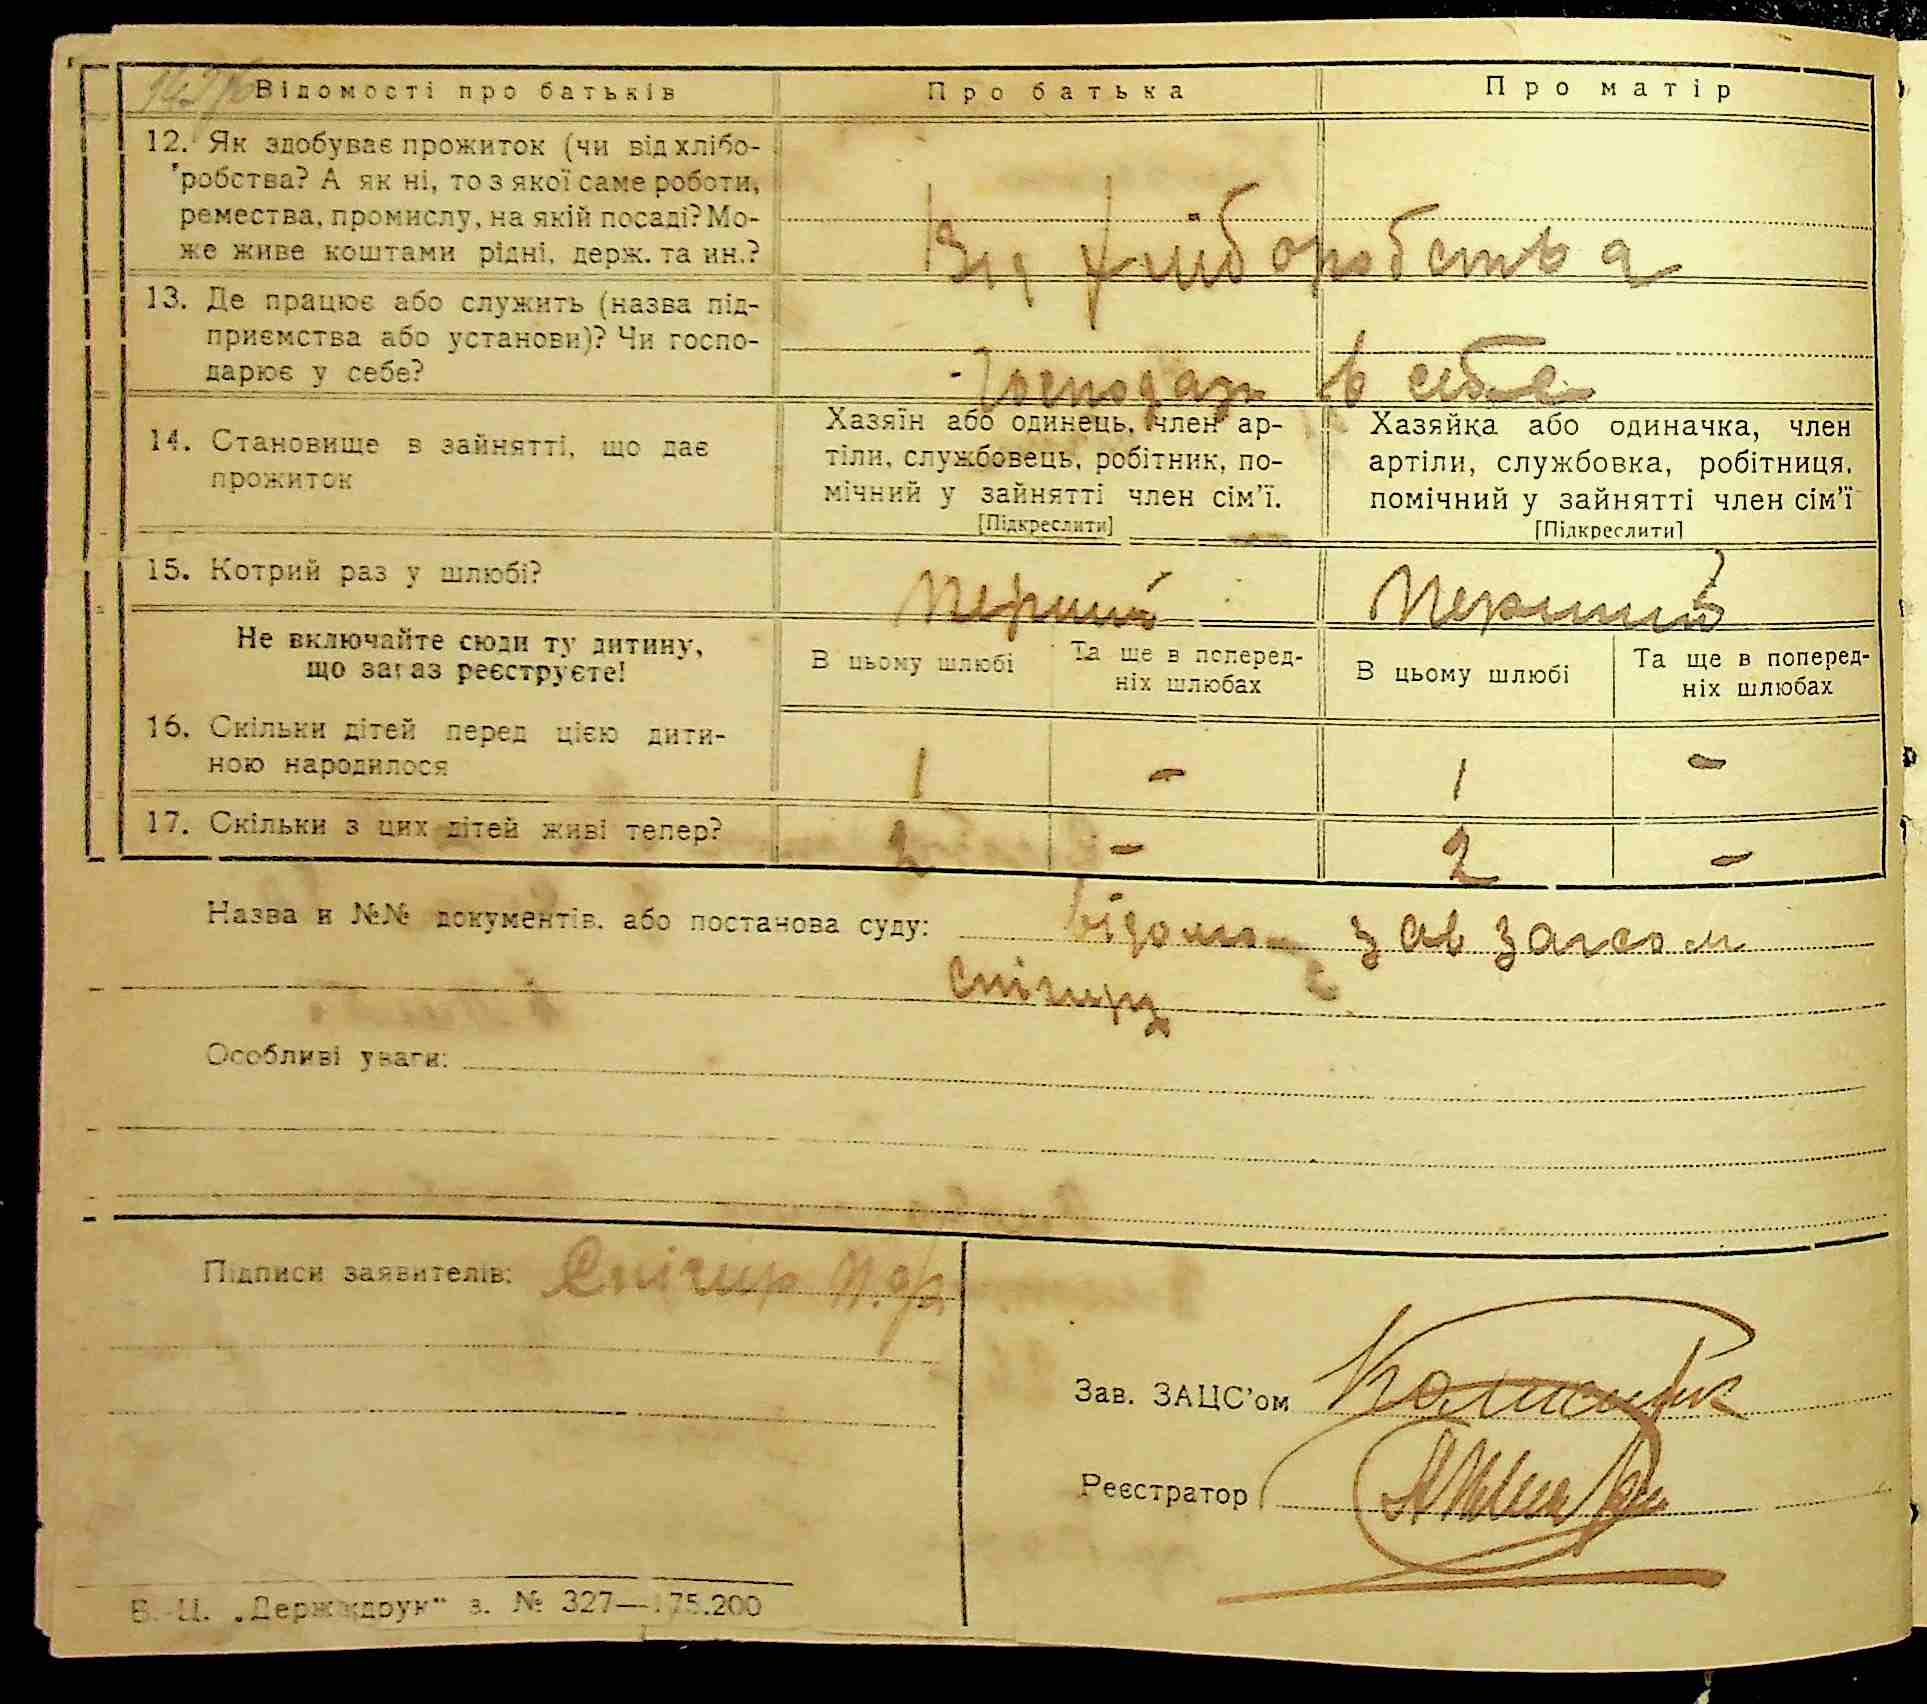 Відомості про батьків
Про батька
Про матір
12. Як здобуває прожиток (чи від хлібо-
робства? А як ні, то з якої саме роботи,
ремества, промислу, на якій посаді? Мо-
же живе коштами рідні, держ. та ин.?
Від хліборобства
13. Де працює або служить (назва під-
приємства або установи)? Чи госпо-
дарює у себе?
Господар в себе
14. Становище в зайнятті, що дає
прожиток
Хазяїн або одинець, член ар-
тіли, службовець, робітник, по-
мічний у зайнятті член сім'ї.
[Підкреслити]
Хазяйка або одиначка, член
артіли, службовка, робітниця,
помічний у зайнятті член сім'ї
[Підкреслити]
15. Котрий раз у шлюбі?
перший
перший
Не включайте сюди ту дитину,
що зараз реєструєте!
В цьому шлюбі
Та ще в поперед-
ніх шлюбах
В цьому шлюбі
Та ще в поперед-
ніх шлюбах
16. Скільки дітей перед цією дити-
ною народилося
1 - 1 -
17. Скільки з цих дітей живі тепер?
2 - 2 -
Назва и №№ документів, або постанова суду:
зав загсом
Особливі уваги:
Підписи заявителів: Снігир
Зав. ЗАЦС'ом
Реєстратор
В.-Ц. „Держдрук" з. № 327—175.200